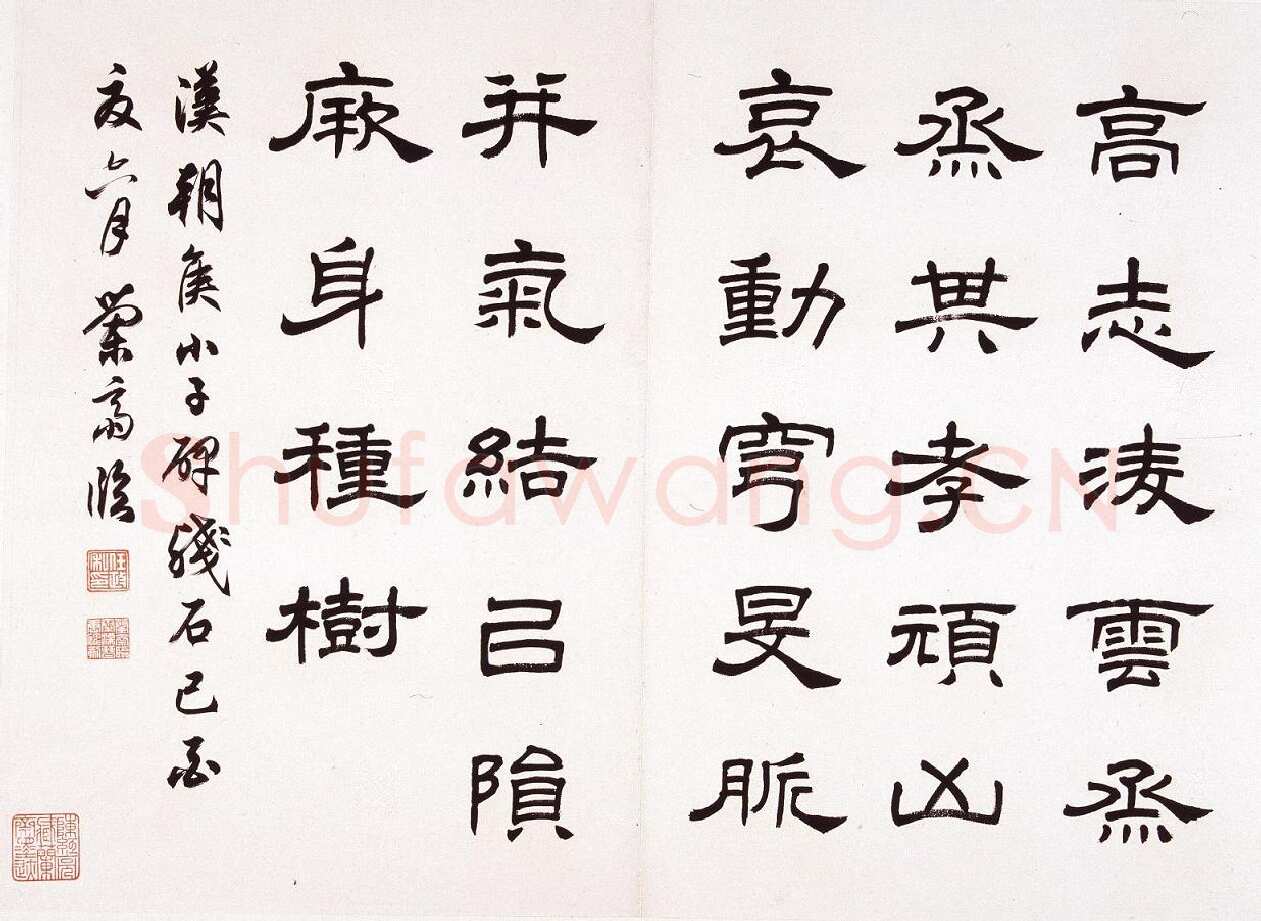 高志淩雲烝
烝其孝頑凶
哀動穹旻脈
并氣結以隕
厥身種樹
漢朝侯小子碑殘石己酉
夏六月榮齋臨
Shufawang.CN